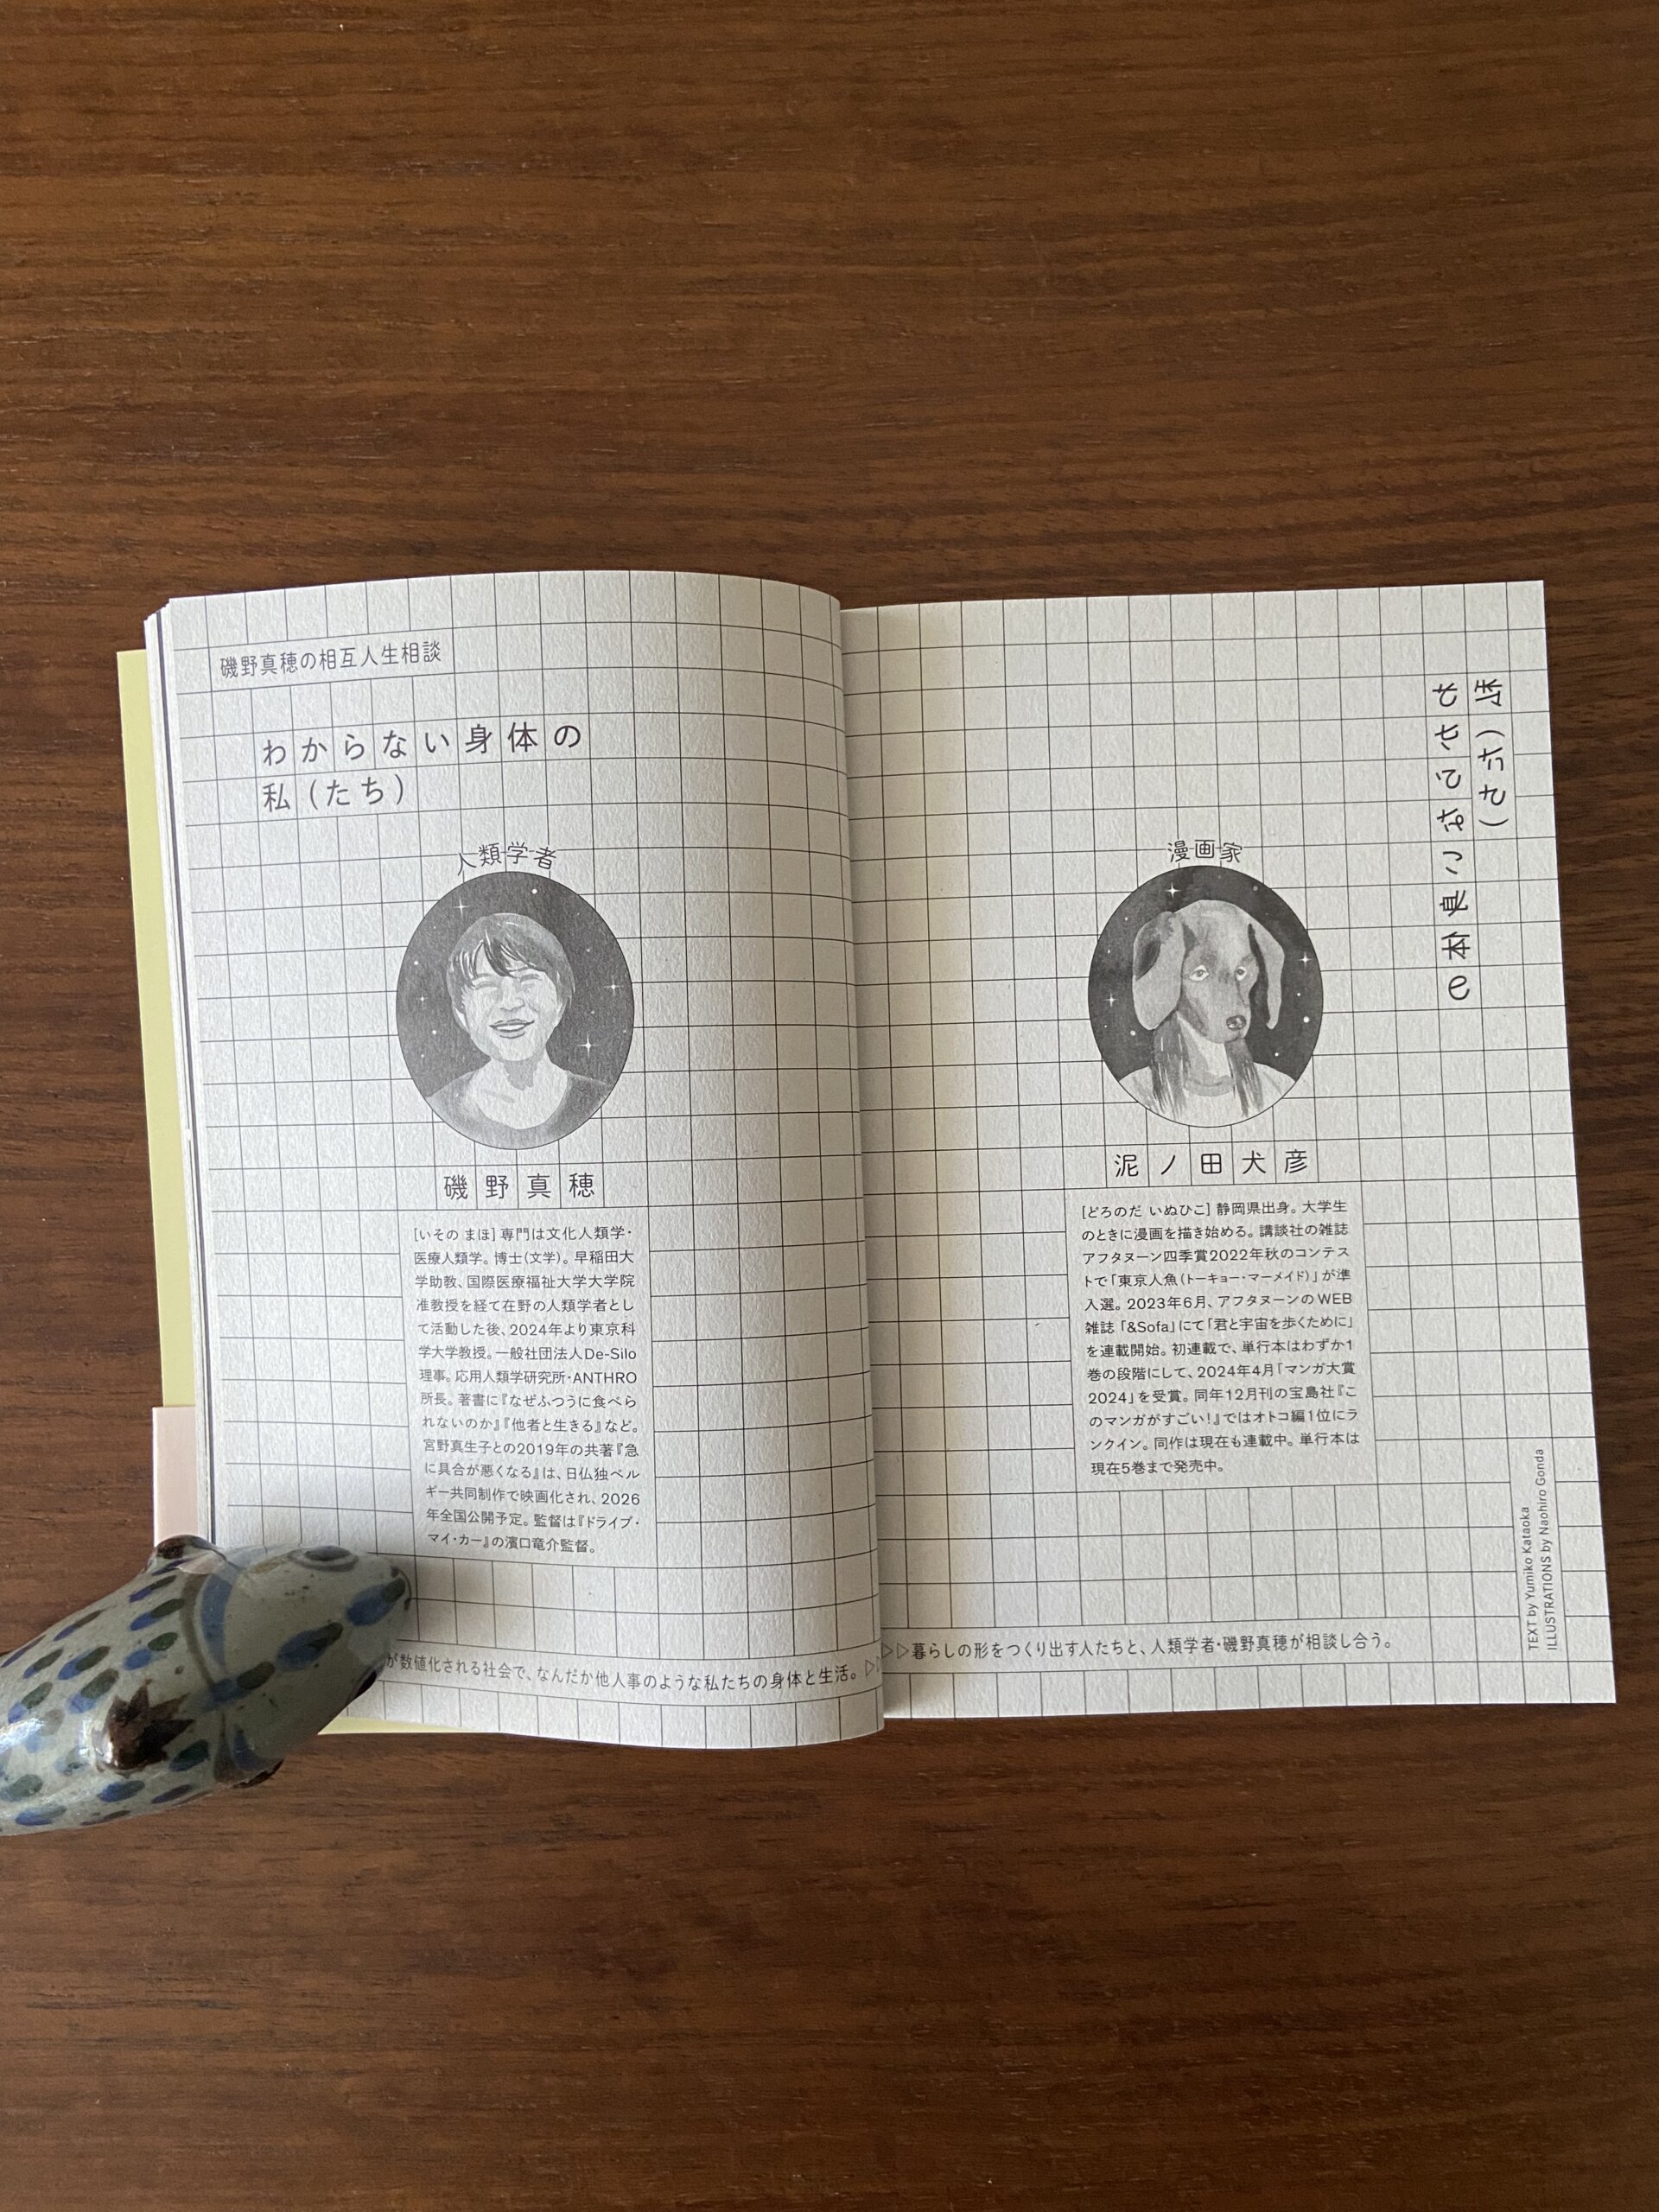 磯野真穂の相互人生相談
わからない身体の
私(たち)
人類学者
磯野真穂
[いその まほ] 専門は文化人類学・
医療人類学。博士(文学)。早稲田大
学助教、国際医療福祉大学大学院
准教授を経て在野の人類学者とし
て活動した後、2024年より東京科
学大学教授。一般社団法人De-Silo
理事。応用人類学研究所・ANTHRO
所長。著書に『なぜふつうに食べら
れないのか』『他者と生きる』など。
宮野真生子との2019年の共著『急
に具合が悪くなる』は、日仏独ベル
ギー共同制作で映画化され、2026
年全国公開予定。監督は『ドライブ・
マイ・カー』の濱口竜介監督。
が数値化される社会で、なんだか他人事のような私たちの身体と生活。▷▷
漫画家
泥ノ田犬彦
[どろのだ いぬひこ] 静岡県出身。大学生
のときに漫画を描き始める。講談社の雑誌
アフタヌーン四季賞2022年秋のコンテス
トで「東京人魚(トーキョー・マーメイド)」が準
入選。2023年6月、アフタヌーンのWEB
雑誌「&Sofa」にて「君と宇宙を歩くために」
を連載開始。初連載で、単行本はわずか1
巻の段階にして、2024年4月「マンガ大賞
2024」を受賞。同年12月刊の宝島社『こ
のマンガがすごい!』ではオトコ編1位にラ
ンクイン。同作は現在も連載中。単行本は
現在5巻まで発売中。
▷▷暮らしの形をつくり出す人たちと、人類学者・磯野真穂が相談し合う。
TEXT by Yumiko Kataoka
ILLUSTRATIONS by Naohiro Gonda